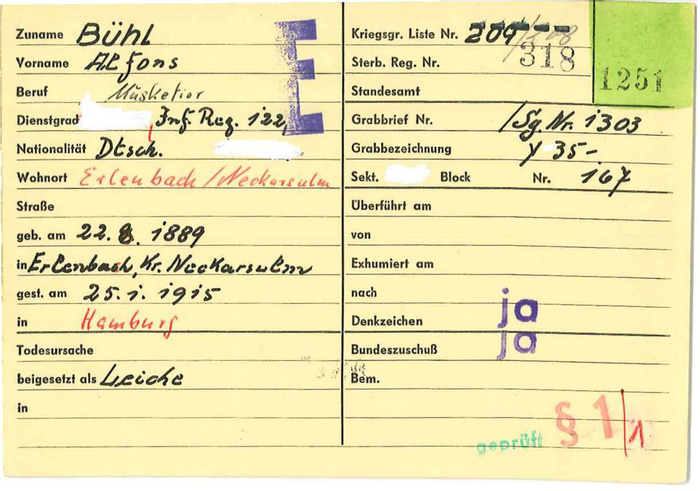 Zuname BÜHL
Vorname Alfons
Beruf Musketier
Dienstgrad Inf. Reg. 122,
Nationalität Dtsch.
Wohnort Erlenbach/Neckarsulm
Straße
geb. am 22. 8. 1889
in Erlenbach, Kr. Neckarsulm
gest. am 25. 1. 1915
in Hamburg
Todesursache
beigesetzt als Leiche
in
E
Kriegsgr. Liste Nr. 209
318
Sterb. Reg. Nr.
1251
Standesamt
Grabbrief Nr. /Sg. Nr. 1303
Grabbezeichnung Y 35-
Sekt. Block Nr. 167
Überführt am
von
Exhumiert am
nach
Denkzeichen ja
Bundeszuschuß ja
Bem.
geprüft § 1/1